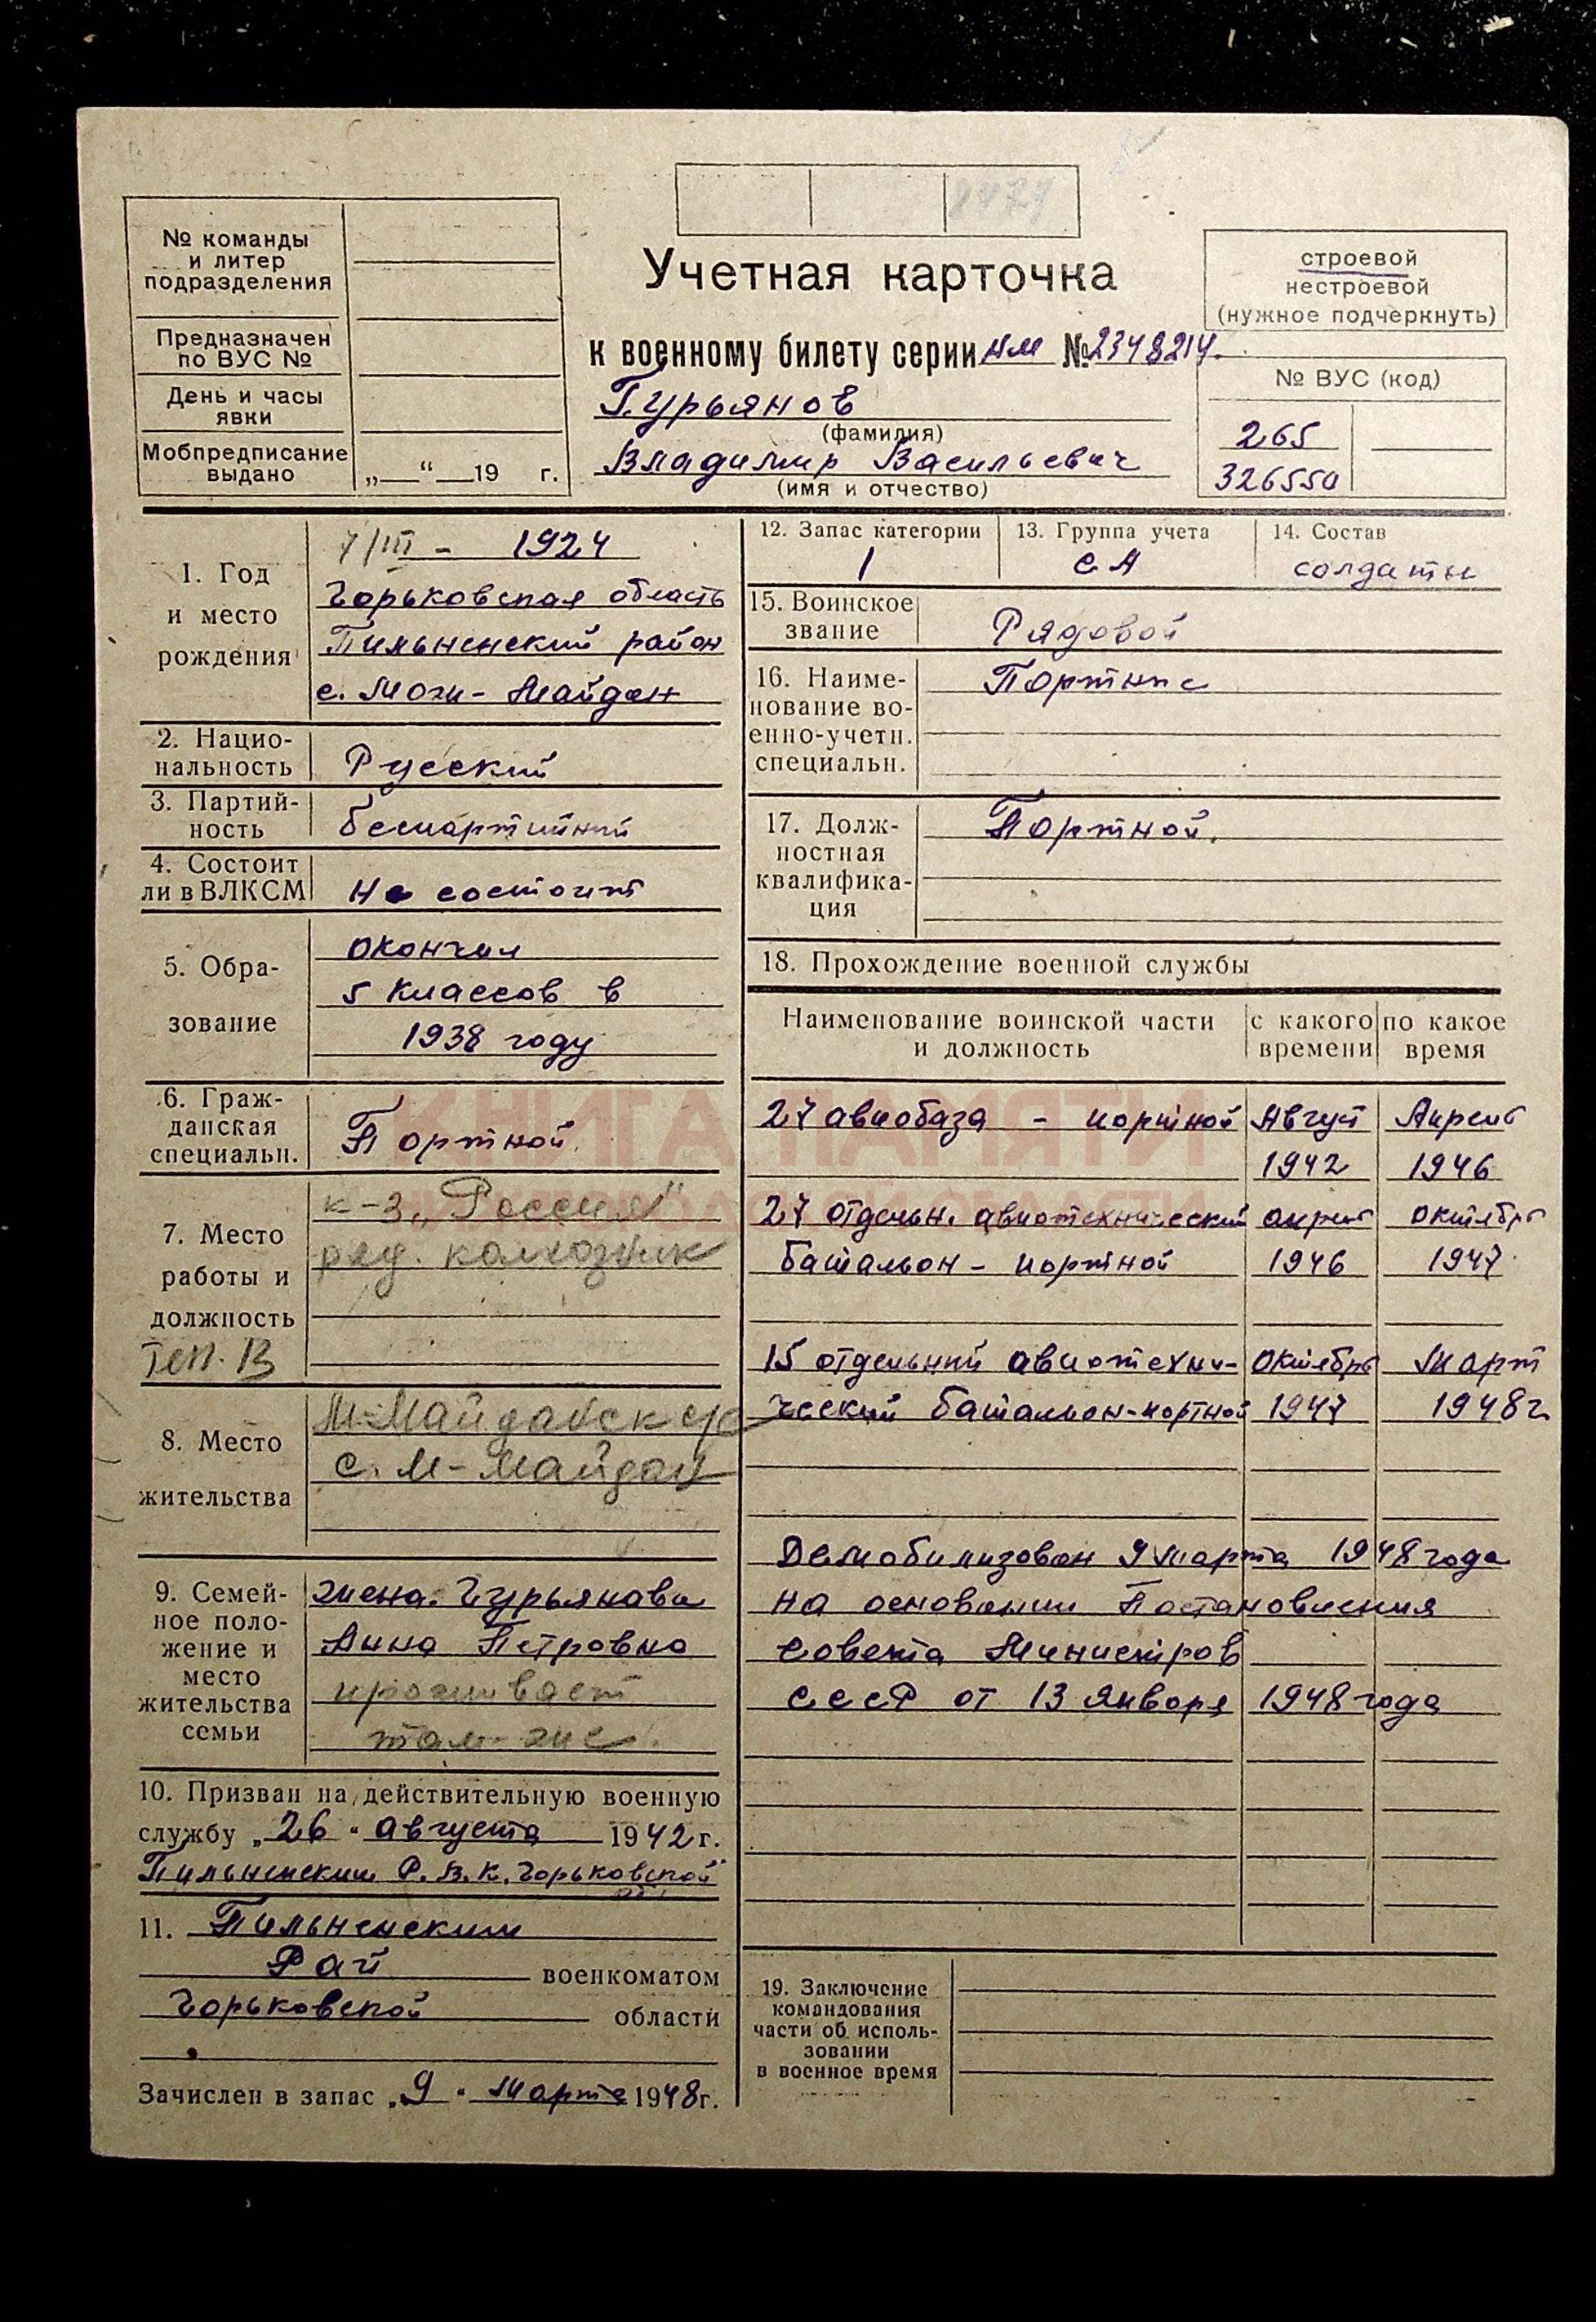 № команды
и литер
подразделения
Предназначен
по ВУС №
День и часы
явки
Мобпредписание
выдано
„ “ 19 г.
Учетная карточка
к военному билету серии нм № 2348214
Гурьянов
(фамилия)
Владимир Васильевич
(имя и отчество)
строевой
нестроевой
(нужное подчеркнуть)
№ ВУС (код)
265
1. Год
и место
рождения
7/III - 1924
Горьковская область
Пильненский район
с. Можи-Майдан
2. Нацио-
нальность
Русский
3. Партий-
ность
беспартийный
4. Состоит
ли в ВЛКСМ
не состоит
5. Обра-
зование
окончил
5 классов в
1938 году
6. Граж-
данская
специальн.
Портной
7. Место
работы и
должность
к-з „Россия“
ряд. колхозник
8. Место
жительства
с. М-Майдан
9. Семей-
ное поло-
жение и
место
жительства
семьи
жена. Гурьянова
Анна Петровна
проживает
там-же
10. Призван на действительную военную
службу „26“ августа 1942 г.
Пильненским Р.В.К. Горьковской
обл.
11. Пильненским
Рай военкоматом
Горьковской области
Зачислен в запас „9“ марта 1948г.
12. Запас категории
1
13. Группа учета
СА
14. Состав
солдаты
15. Воинское
звание
Рядовой
16. Наиме-
нование во-
енно-учетн.
специальн.
Портные
17. Долж-
ностная
квалифика-
ция
Портной.
18. Прохождение военной службы
Наименование воинской части
и должность
с какого
времени
по какое
время
27 авиобаза - портной Август Апрель
1942 1946
27 отдельн. авиотехнический апрель октябрь
батальон - портной 1946 1947
15 отдельный авиотехни- октябрь март
ческий батальон-портной 1947 1948г
Демобилизован 9 марта 1948 года
на основании Постановления
Совета Министров
СССР от 13 января 1948 года
19. Заключение
командования
части об исполь-
зовании
в военное время
КНИГА ПАМЯТИ